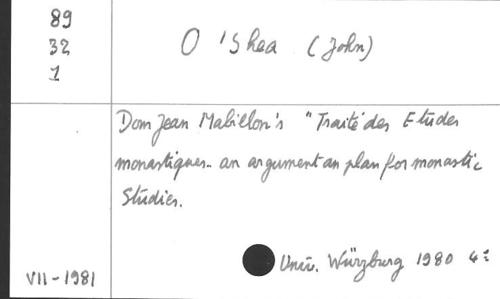 89
32
1
O'Shea (John)
Dom Jean Mabillon's "Traité des Etudes
monastiques.. an argument an plan for monastic
Studies.
Univ. Würzburg 1980 4:
VII-1981